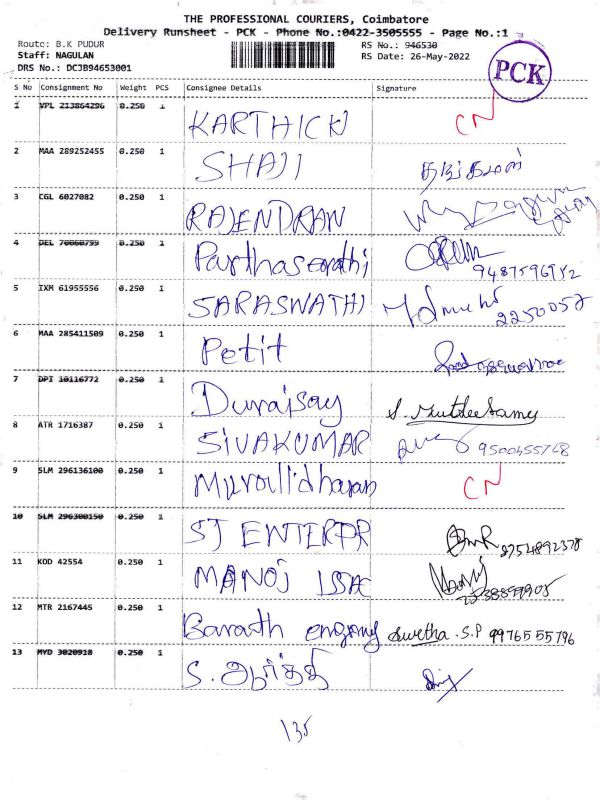 THE PROFESSIONAL COURIERS, Coimbatore
Delivery Runsheet - PCK - Phone No.:0422-3505555 - Page No.:1
Route: B.K PUDUR RS No.: 946530
Staff: NAGULAN RS Date: 26-May-2022
DRS No.: DCJB94653001
PCK
S No Consignment No Weight PCS Consignee Details Signature
1 VPL 213864296 0.250 1 KARTHICK CN
2 MAA 289252455 0.250 1 SHAJI
3 CGL 6027082 0.250 1 RAJENDRAN
4 DEL 70060799 0.250 1 Parthasarathi
5 IXM 61955556 0.250 1 SARASWATHI 2250052
6 MAA 285411509 0.250 1 Petit
7 DPI 10116772 0.250 1 Duraisay
8 ATR 1716387 0.250 1 SIVAKUMAR
9 SLM 296136100 0.250 1 Murallidharan CN
10 SLM 296300150 0.250 1 SJ ENTERPR
11 KOD 42554 0.250 1 MANOJ ISSAC
12 MTR 2167445 0.250 1 Barath Swetha .S.P 99765 55796
13 MYD 3020918 0.250 1 S. ஆர்த்தி
135